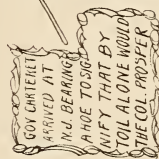 GOV CARTERET
ARRIVED AT
N.J. BEARING
A HOE TO SIG
NIFY THAT BY
TOIL ALONE WOULD
THE COL. PROSPER